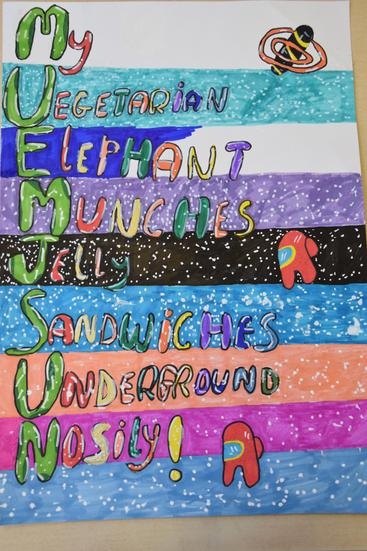 My
VEGETARIAN
ElEPHANT
MUNCHES
Jelly
SANDWiCHES
UNDERGROUND
NOSily!